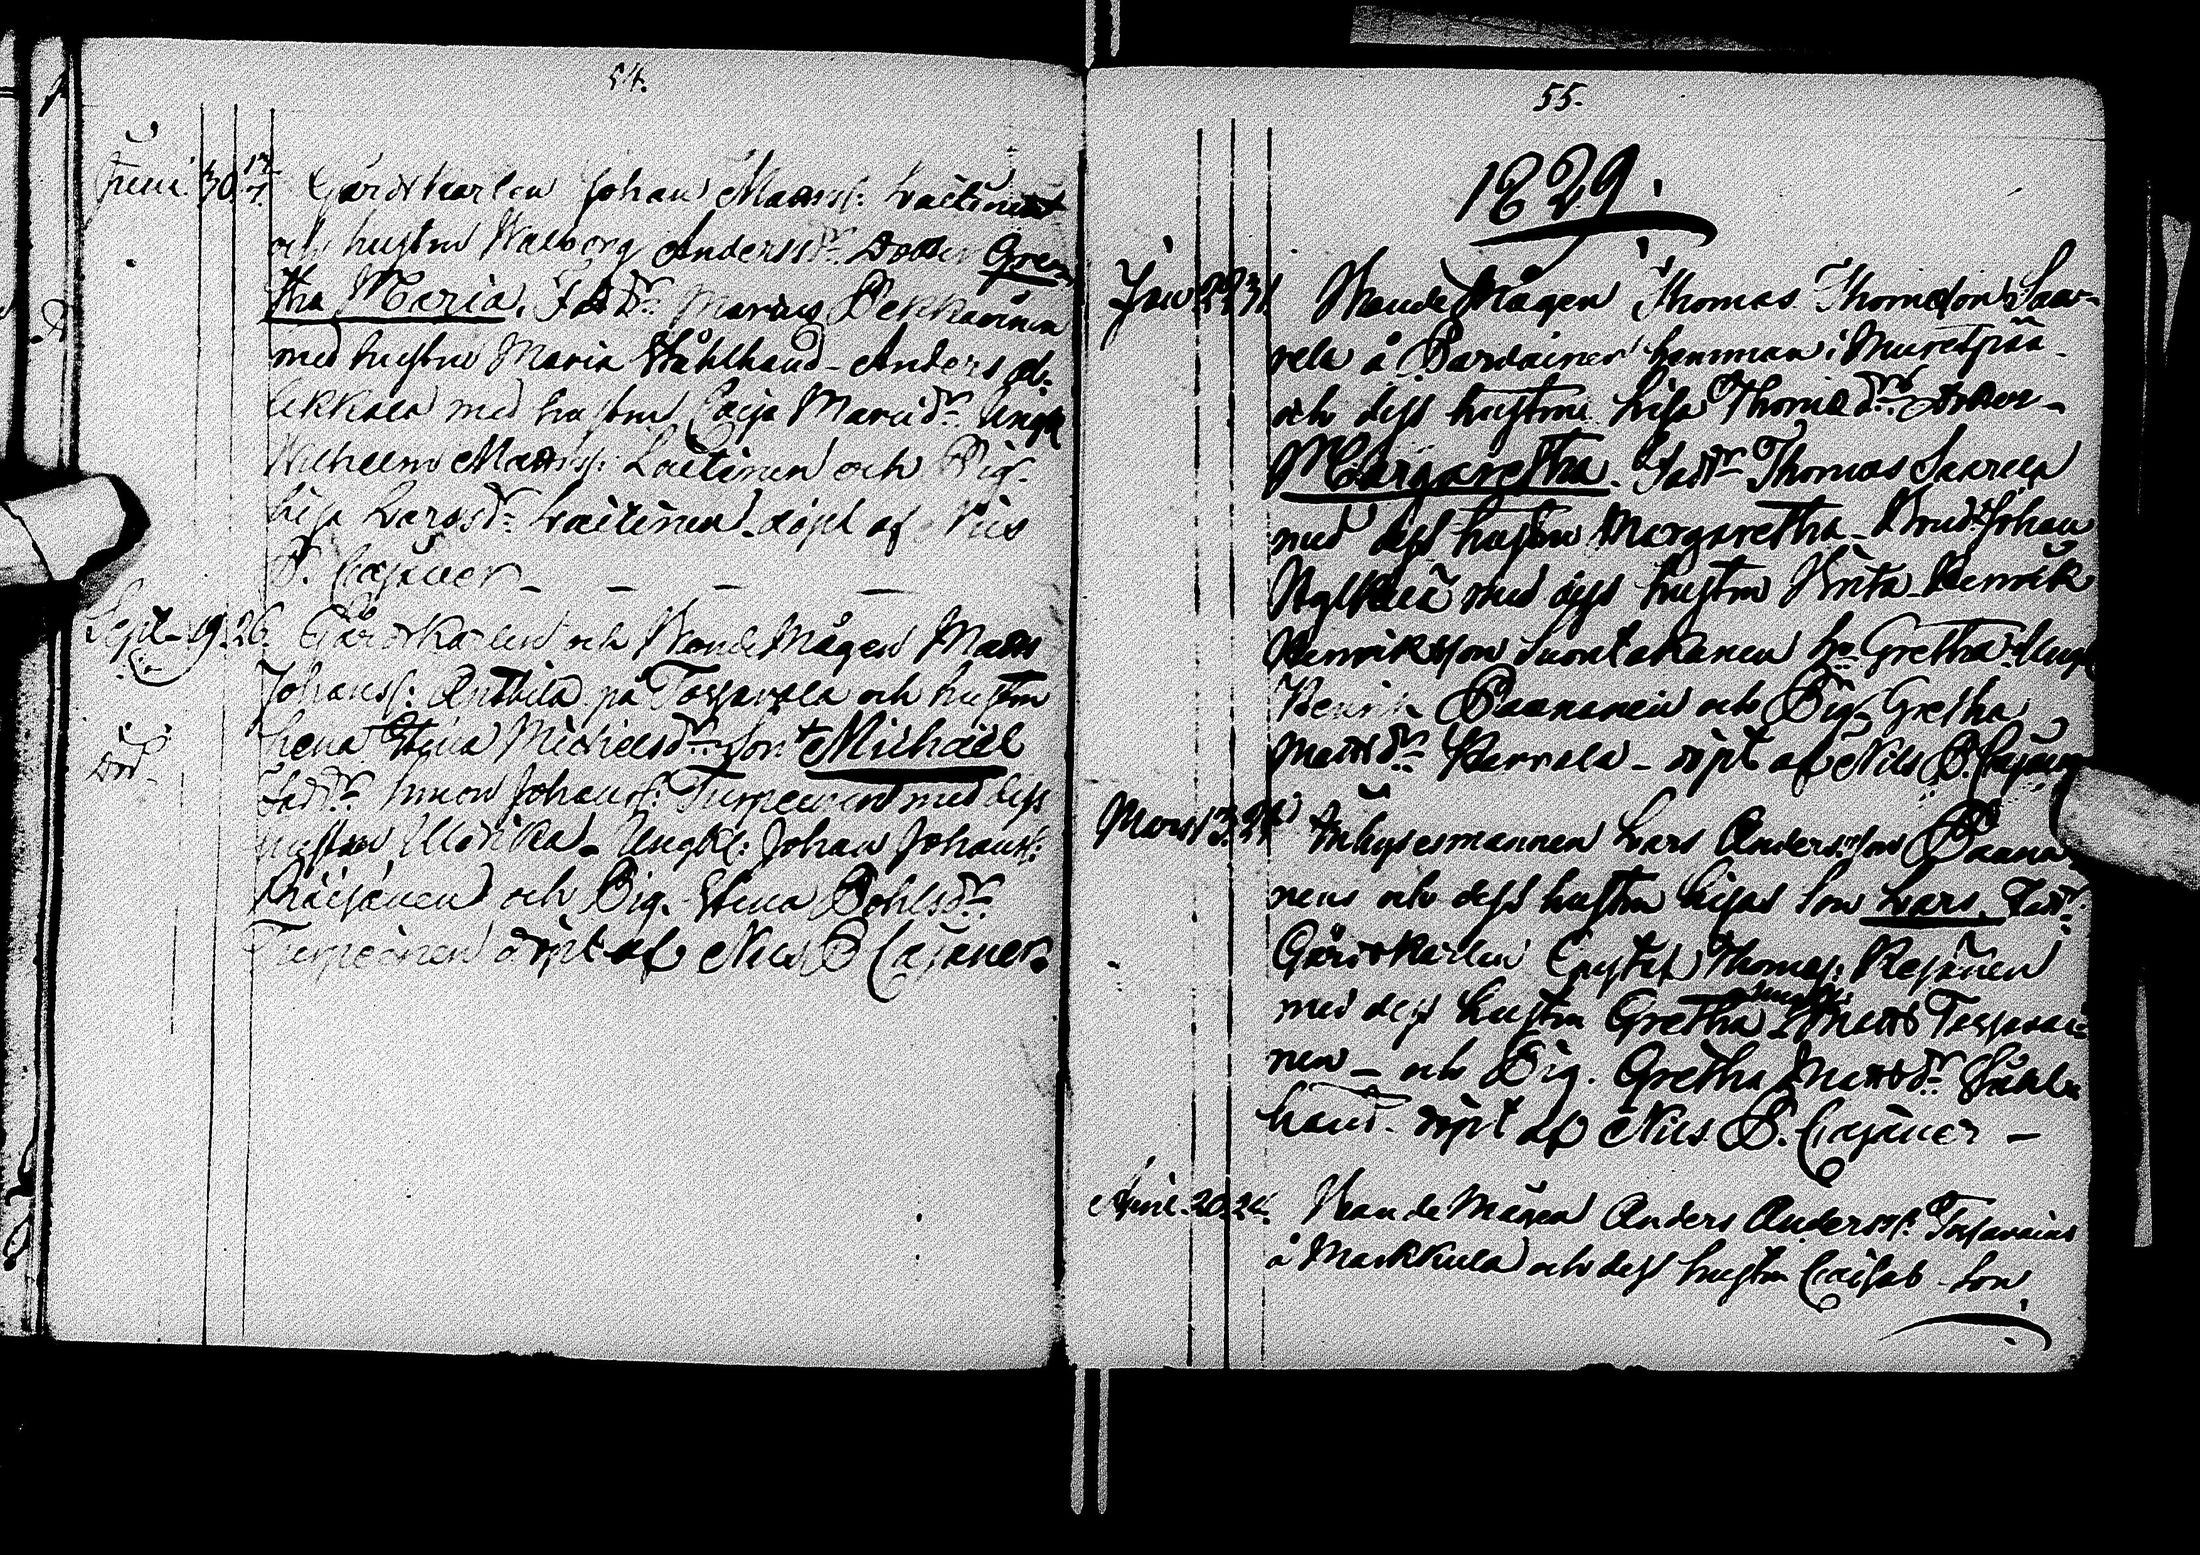 54.
Juni 30. 17/7. Gårdskarlen Johan Mattss: Laitinen
och hustru Walborg Andersdr Dotter Gre=
tha Maria. Faddr: Marcus Pekkarinen
med hustru Maria Ståhlhand – Anders
Ukkola med hustru Caisa Marcidr Ungk
Wilhelm Mattss: Laitinen och Pig.
Lisa Larsdr Laitinen. döpt af Nils
P. Cajaner –
Sept. 19. 26. Gårdskarlen och Bonde Mågen Matts
Johanss: Anttila på Tossavala och hustru
död.
Lena Stina Michelsdr Son Michaël
Faddr: Simon Johanss: Turpeinen med dess
hustru Ullrika. Ungkl: Johan Johanss:
Räisänen och Pig. Stina Pohlsdr
Turpeinen döpt af Nils P Cajaner.
55.
1829.
Jan 29. 31. Bonde Mågen Thomas Thomasson Saar=
rela å Pardainen hemman i Muretjää
och dess hustru Lisa Thomædrs Dotter
Margaretha. Faddr Thomas Saarela
med dess hustru Margaretha – Bond. Johan
med dess hustru Brita – Henrik
Henriksson Suontakanen h. Gretha – Ungk
Henrik Paananen och Pig. Gretha
Mattsdr Karvala – döpt af Nils P. Cajaner
Mars 13. 21. Inhysesmannen Lars Andersson Paana
nens och dess hustru Lisas Son Lars. Faddr
Gårdskarlen Gustaf Thomass: Kejanen
med dess hustru Gretha Matts Tossavai=
nen – och Pig. Gretha Mattsdr Ståhl=
hand. döpt af Nils P. Cajaner –
April. 20. 24. Bonde Mågen Anders Anderss: Tossavains
å Markkula och dess hustru Caisas – Son,